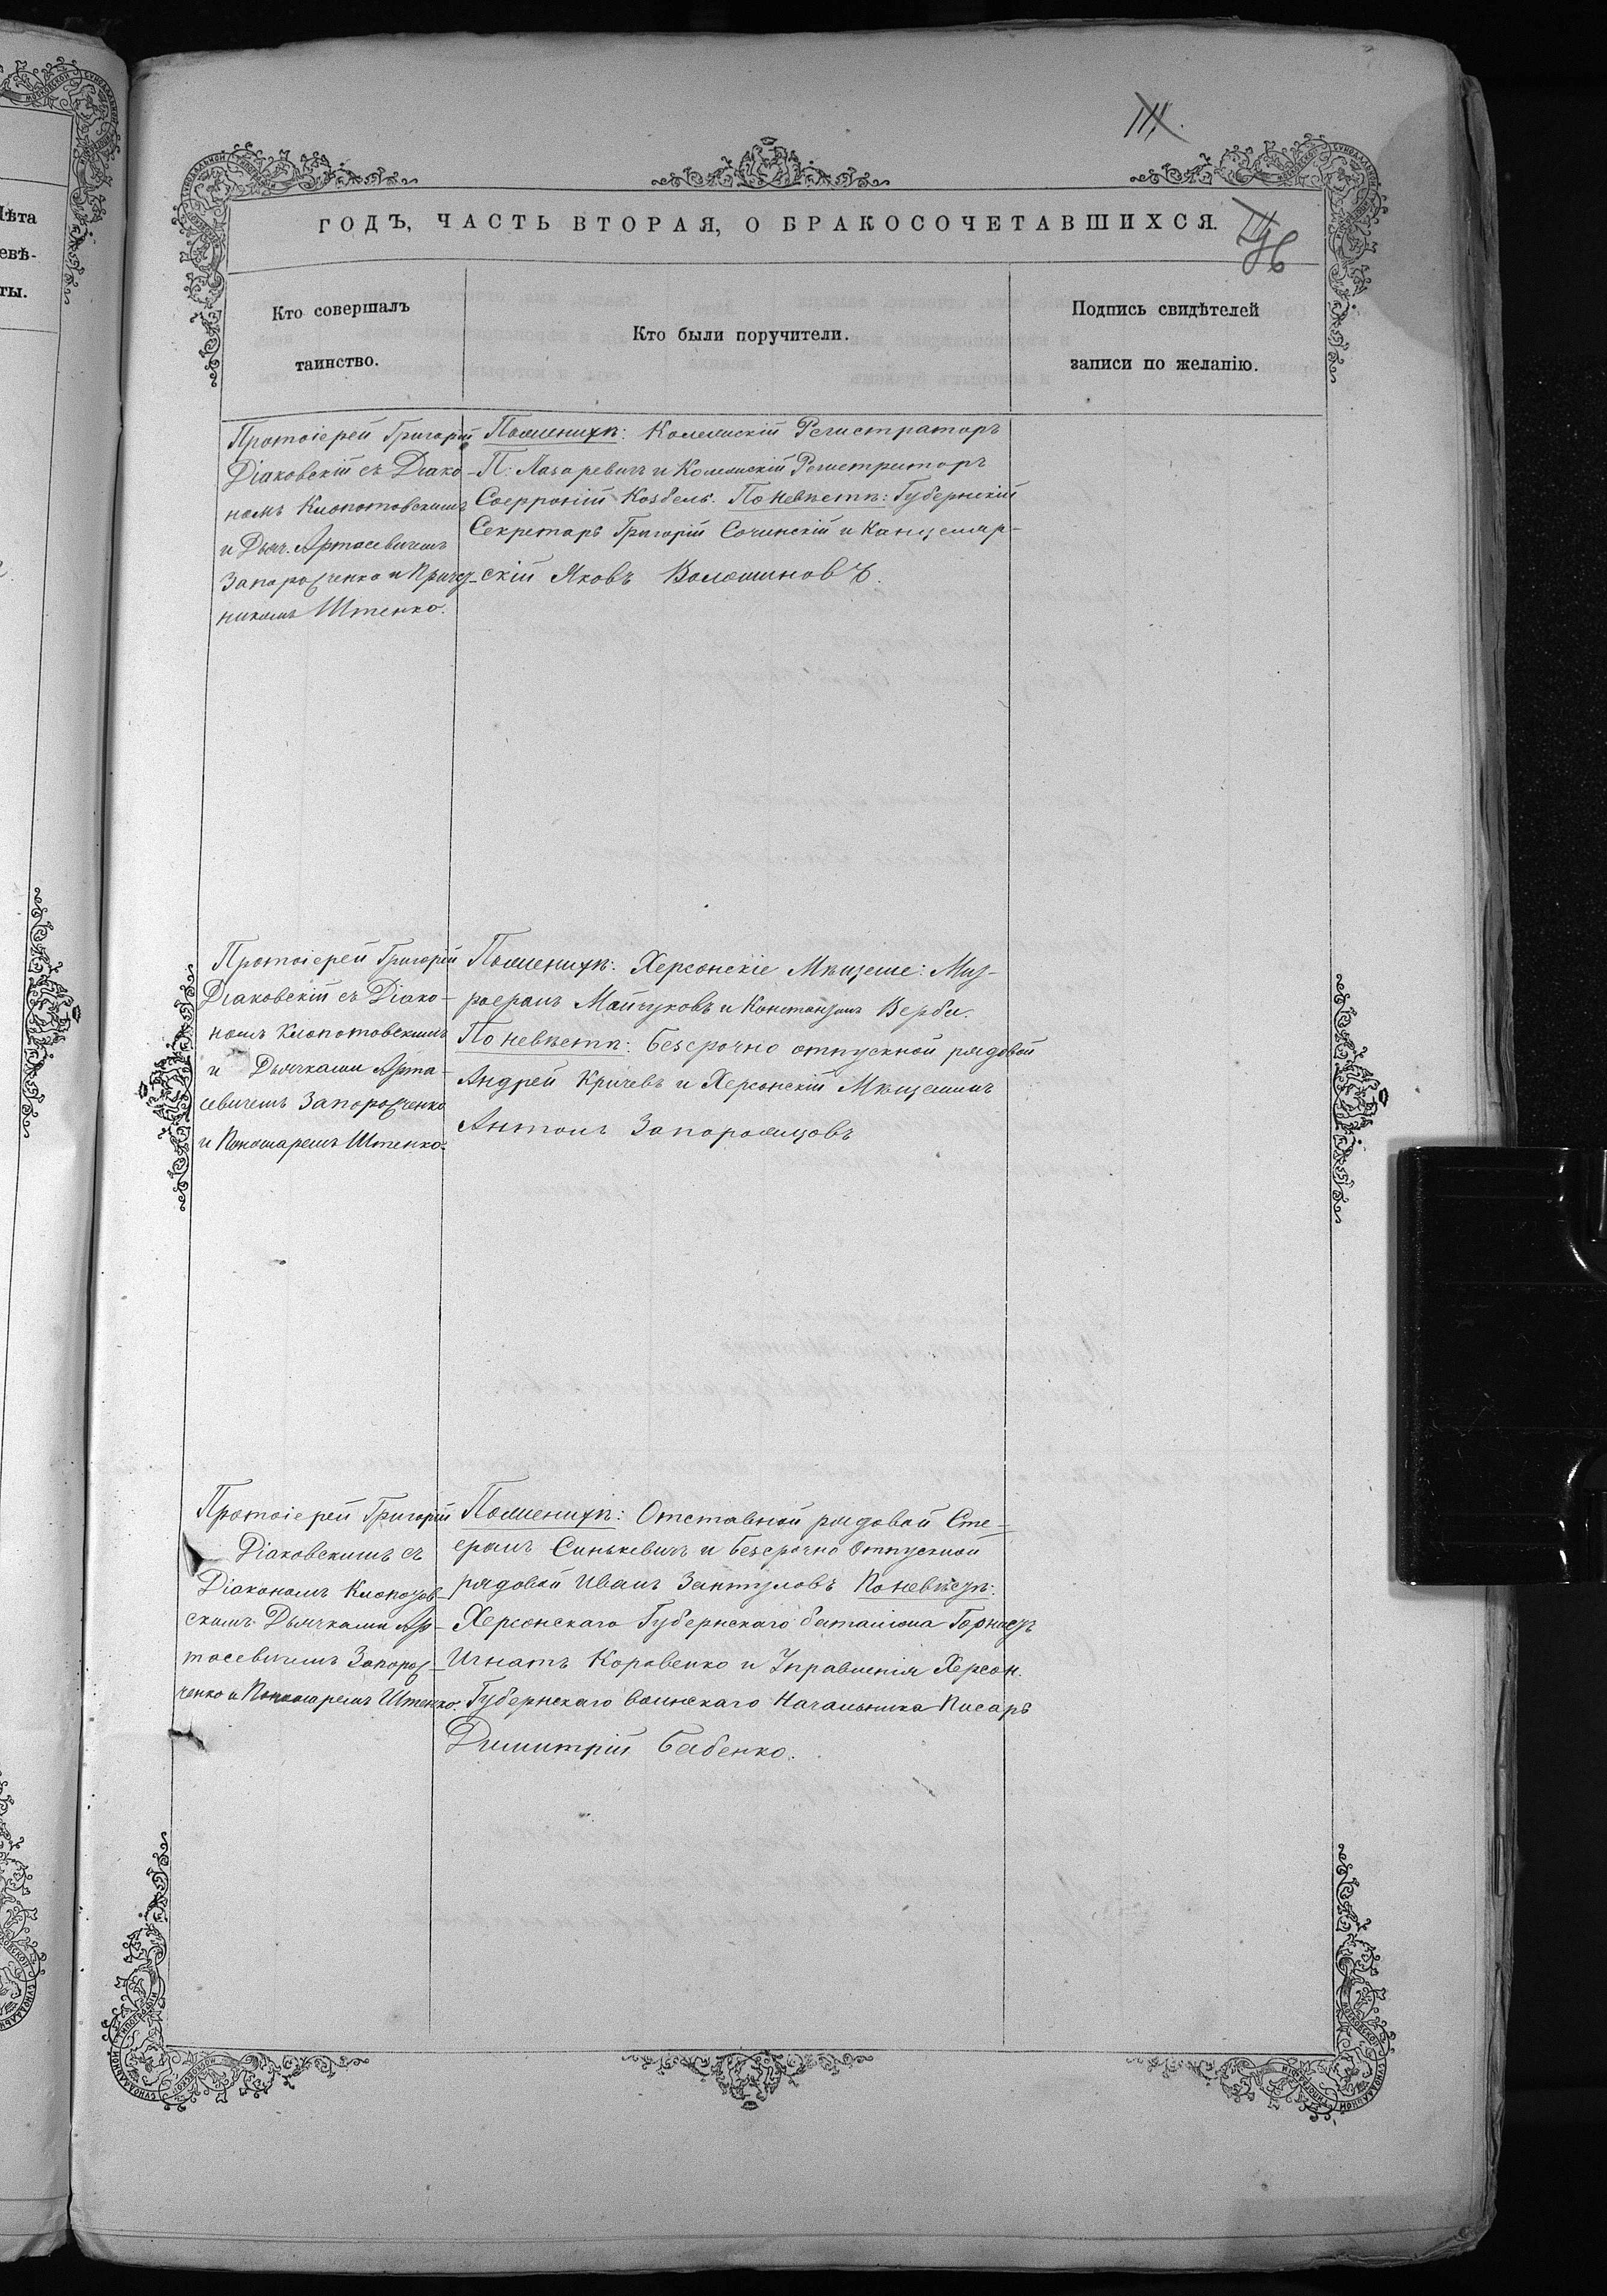 111.
ГОДЪ, ЧАСТЬ ВТОРАЯ, О БРАКОСОЧЕТАВШИХСЯ.
46
Кто совершалъ
таинство.
Кто были поручители.
Подпись свидѣтелей
записи по желанію.
Протоіерей Григорій
Діаковскій съ Діако-
номъ Клопотовскимъ
и Дьяч. Артасевичемъ
Запорожченко и Причет-
никомъ Штенко.
По женихѣ: Коллежскій Регистраторъ
П. Лазаревичъ и Коллежскій Регистраторъ
Софроній Козбель. По невѣстѣ: Губернскій
Секретарь Григорій Сочинскій и Канцеляр-
скій Яковъ Волошиновъ.
Протоіерей Григорій
Діаковскій съ Діако-
номъ Клопотовскимъ
и Дьячками Арта-
севичемъ Запорожченко
и Пономаремъ Штенко.
По женихѣ: Херсонскіе Мѣщане:
Майчуковъ и Константинъ Верба.
По невѣстѣ: безсрочно отпускной рядовой
Андрей Кричевъ и Херсонскій Мѣщанинъ
Антонъ Запорожцовъ
Протоіерей Григорій
Діаковскимъ съ
Діакономъ Клопотов-
скимъ Дьячками Ар-
тасевичемъ Запорож-
ченко и Пономаремъ Штенко.
По женихѣ: Отставной рядовой Сте-
фанъ Синькевичъ и безсрочно Отпускной
рядовой Иванъ Зантуловъ По невѣстѣ:
Херсонскаго Губернскаго баталіона Горнистъ
Игнатъ Коровенко и Управленія Херсон.
Губернскаго Воинскаго Начальника Писарь
Димитрій Бабенко.
Лѣта
евѣ-
ты.